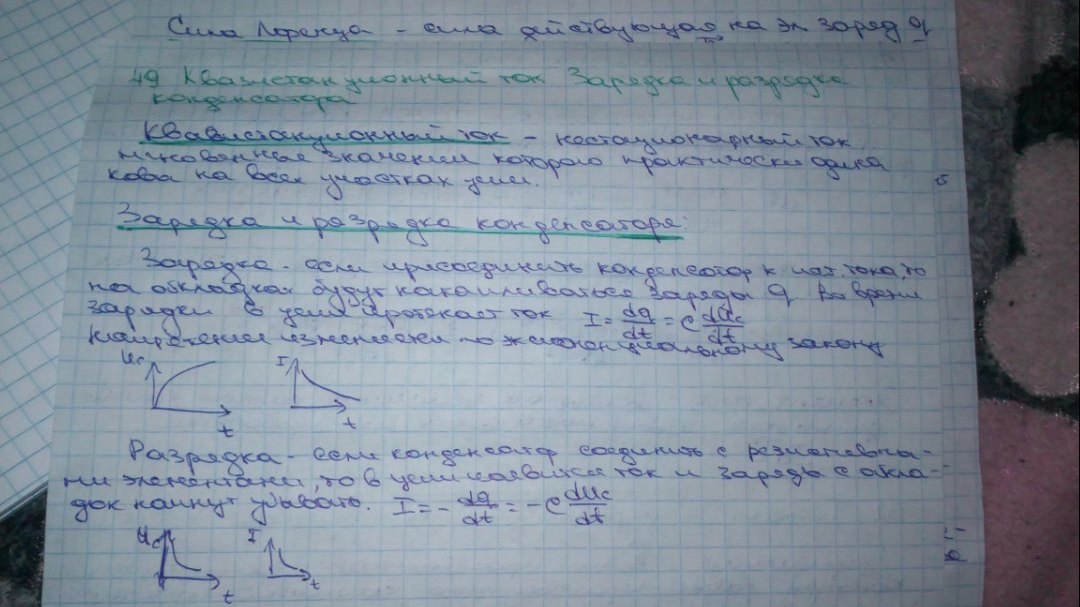 Сила Лоренца - сила действующая на эл заряд q
49 Квазистационный ток Зарядка и разрядка
конденсатора
Квазистационный ток - нестационарный ток
мгновенные значении которого практически одина
ковы на всех участках цепи.
Зарядка и разрядка конденсатора:
Зарядка - если присоединить конденсатор к ист. тока, то
на откладках будут накапливаться заряды q Во время
зарядки в цепи протекает ток I = dq/dt = C dUc/dt
Напряжение изменяется по экспоненциальному закону
Uc I
t t
Разрядка - если конденсатор соединить с резистивны-
ми элементами, то в цепи появится ток и заряды с откла-
док начнут убывать. I = - dq/dt = -C dUc/dt
Uc I
t t